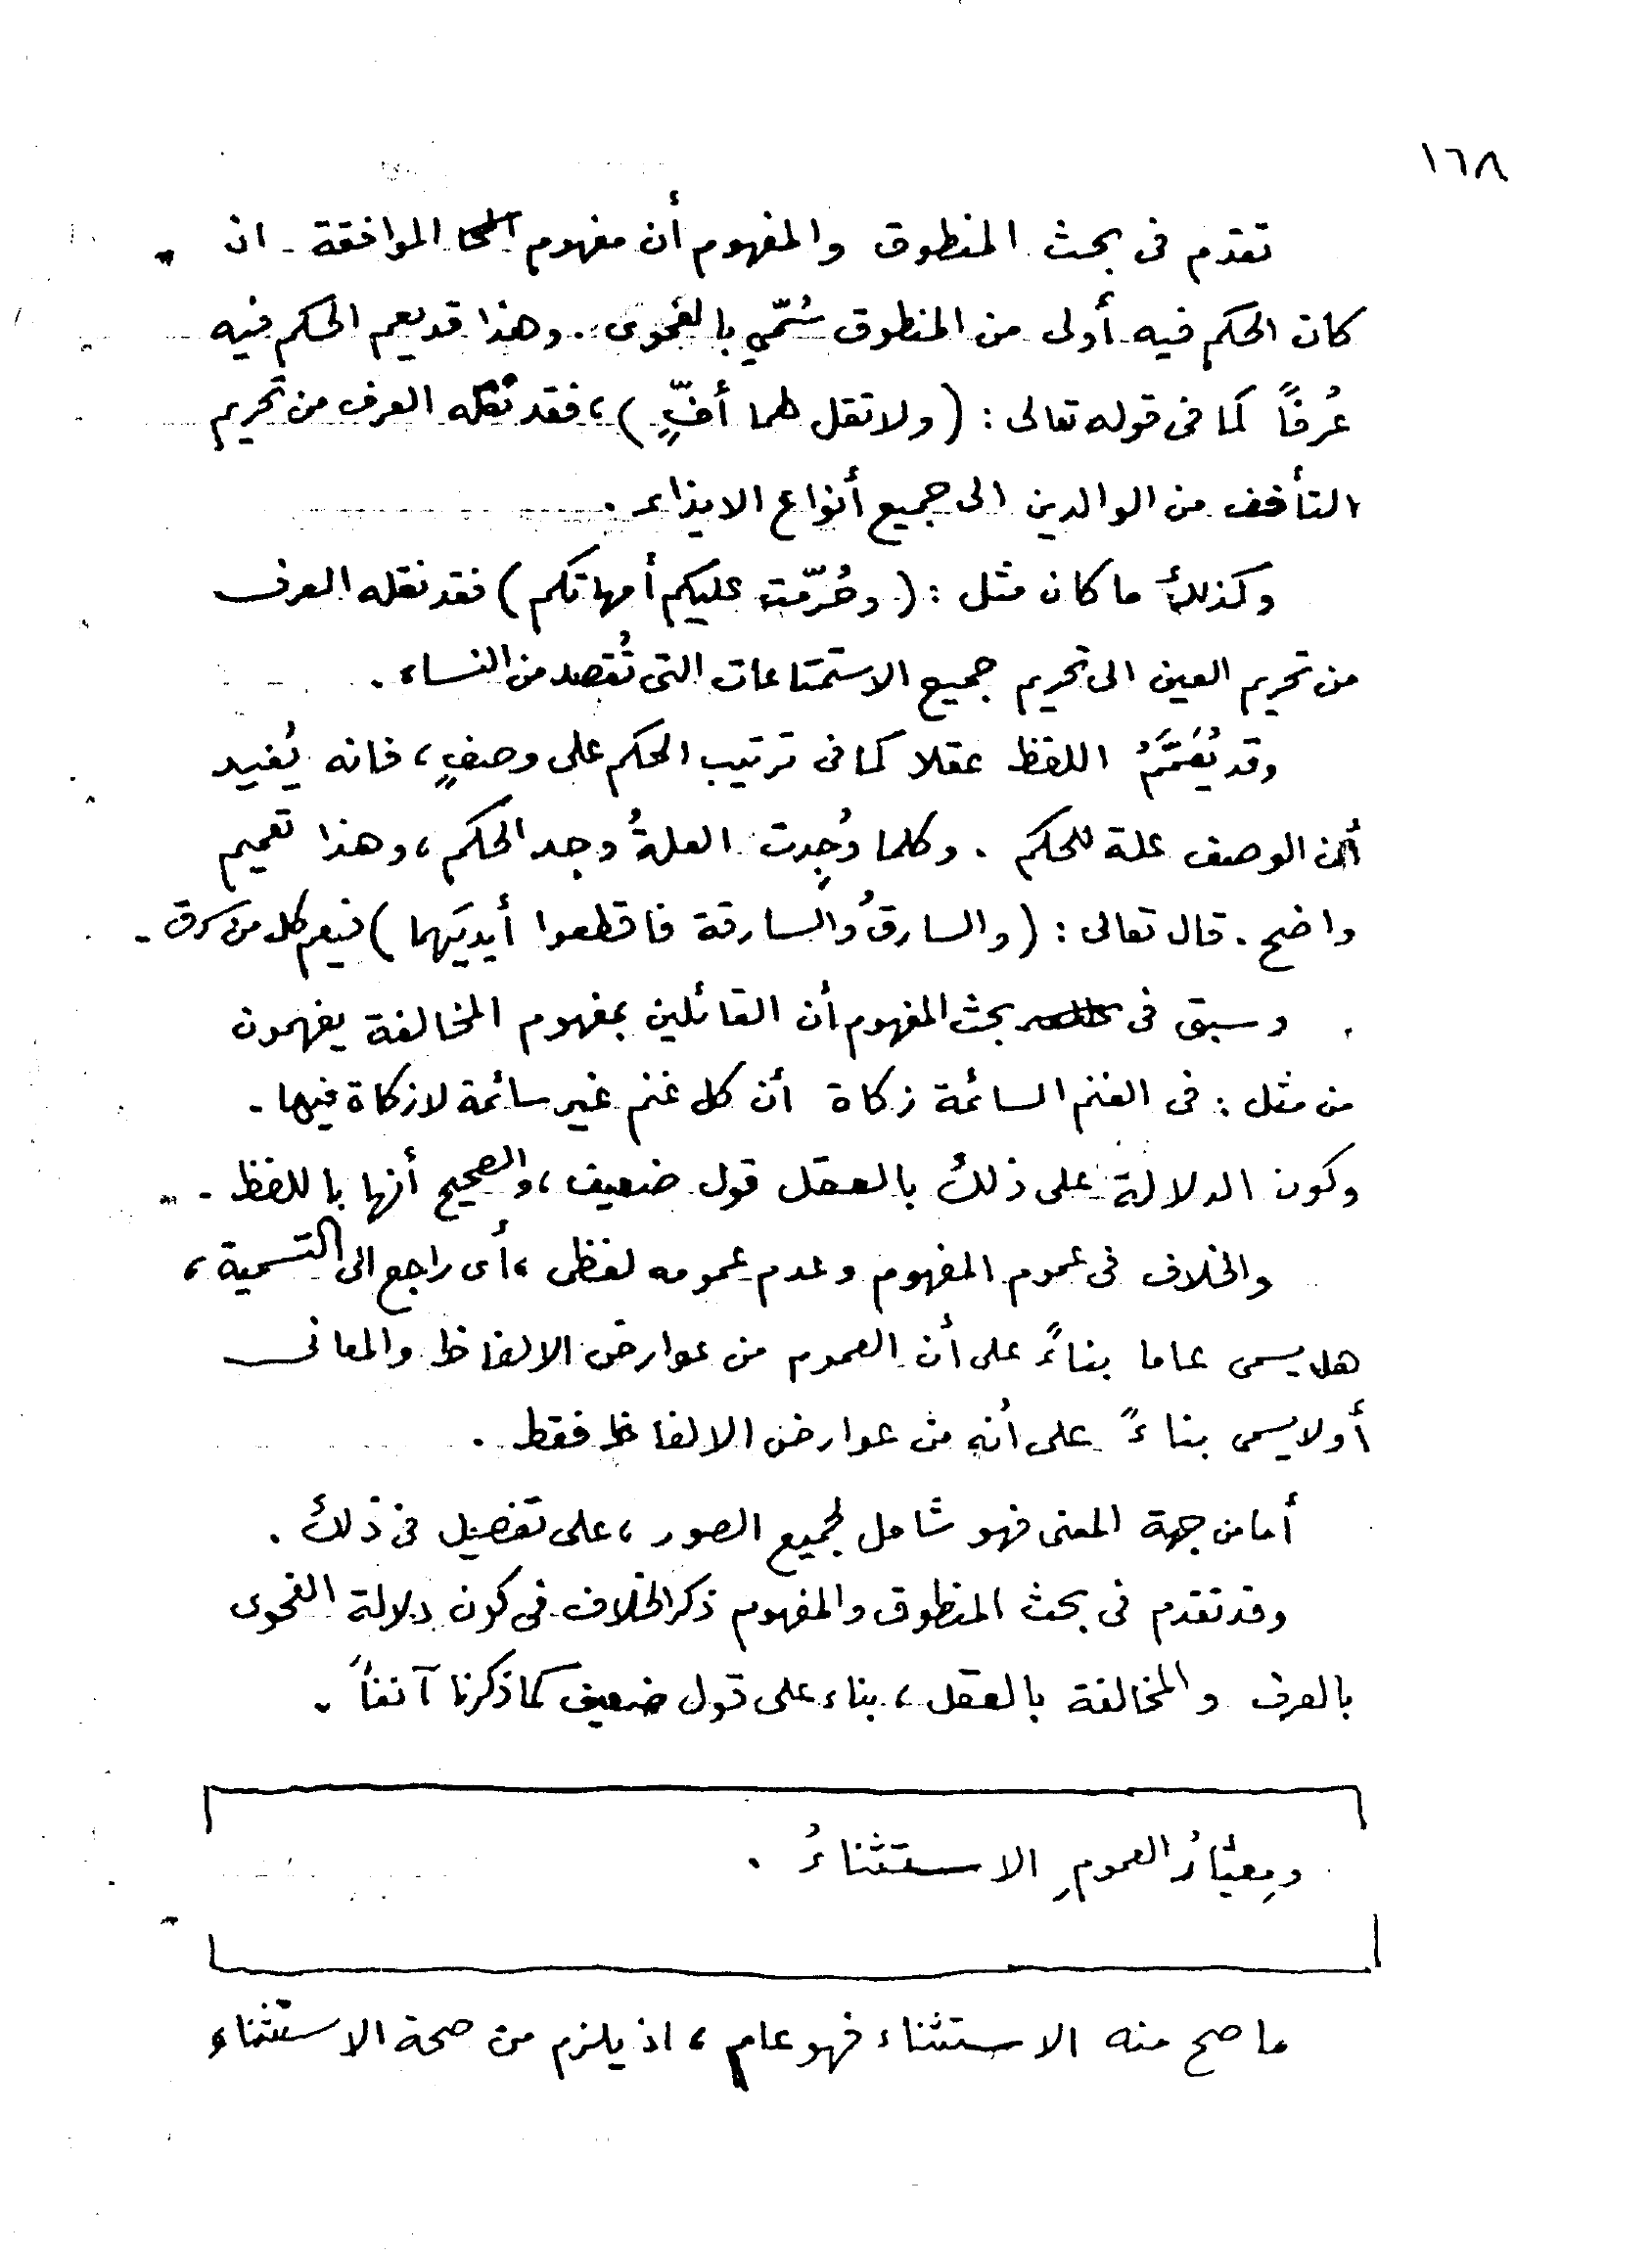 ١٦٨
تقدم فى بحث المنطوق والمفهوم أن مفهوم الموافقة ان
كان الحكم فيه أولى من المنطوق سُمّي بالفحوى . وهذا قد يعم الحكم فيه
عُرفاً كما فى قوله تعالى : ( ولا تقل لهما أفٍّ ) ، فقد نقله العرف من تحريم
التأفف من الوالدين الى جميع أنواع الايذاء .
وكذلك ما كان مثل : ( وحُرّمت عليكم أمهاتكم ) فقد نقله العرف
من تحريم العين الى تحريم جميع الاستمتاعات التى تُقصد من النساء .
وقد يُعَمَّمُ اللفظ عقلا كما فى ترتيب الحكم على وصفٍ ، فانه يُفيد
أن الوصف علة للحكم . وكلما وُجِدت العلةُ وجد الحكم ، وهذا تعميم
واضح . قال تعالى : ( والسارقُ والسارقة فاقطعوا أيديَهما ) فيعم كل من سرق .
وسبق فى بحث المفهوم أن القائلين بمفهوم المخالفة يفهمون
من مثل : فى الغنم السائمة زكاة أن كل غنم غير سائمة لا زكاة فيها .
وكون الدلالة على ذلك بالعقل قول ضعيف ، والصحيح أنها باللفظ .
والخلاف فى عموم المفهوم وعدم عمومه لفظى ، أى راجع الى التسمية ،
هل يسمى عاما بناءً على أن العموم من عوارض الالفاظ والمعانى
أو لا يسمى بناءً على أنه من عوارض الالفاظ فقط .
أما من جهة المعنى فهو شامل لجميع الصور ، على تفصيل فى ذلك .
وقد تقدم فى بحث المنطوق والمفهوم ذكر الخلاف فى كون دلالة الفحوى
بالعرف والمخالفة بالعقل ، بناء على قول ضعيف كما ذكرنا آنفاً .
ومِعْيَارُ العمومِ الاستثناءُ .
ما صح منه الاستثناء فهو عام ، اذ يلزم من صحة الاستثناء